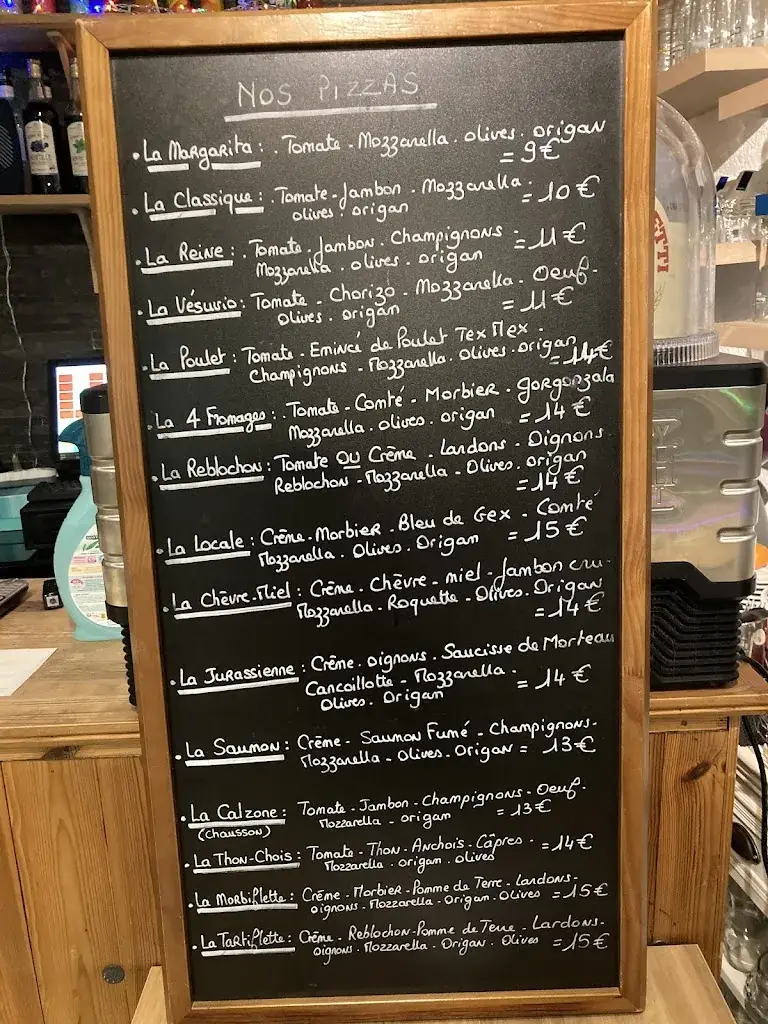 NOS PIZZAS
• La Margarita : . Tomate - Mozzarella . olives . origan
= 9€
• La Classique : . Tomate - Jambon - Mozzarella .
olives . origan = 10€
• La Reine : . Tomate . Jambon . Champignons .
Mozzarella . olives . origan = 11€
• La Vésuvio : Tomate - Chorizo - Mozzarella - Oeuf -
Olives . origan = 11€
• La Poulet : Tomate - Emincé de Poulet Tex Mex -
Champignons - Mozzarella . Olives . origan = 14€
• La 4 Fromages : . Tomate - Comté - Morbier - gorgonzala
Mozzarella . olives . origan = 14€
• La Reblochon : Tomate OU Crème - Lardons - Oignons
Reblochon - Mozzarella - Olives . origan
= 14€
• La Locale : Crème - Morbier - Bleu de Gex - Comté
Mozzarella . Olives . Origan = 15€
• La Chèvre-Miel : Crème . Chèvre - miel - Jambon cru .
Mozzarella - Roquette - Olives . Origan
= 14€
• La Jurassienne : Crème . oignons . Saucisse de Morteau
Cancoillotte - Mozzarella .
Olives . Origan = 14€
• La Saumon : Crème - Saumon Fumé - Champignons -
Mozzarella - Olives - Origan = 13€
• La Calzone : Tomate - Jambon - Champignons - Oeuf -
(chausson) Mozzarella - origan = 13€
• La Thon-Chois : Tomate - Thon - Anchois - Câpres . = 14€
Mozzarella . origan . olives
• La Morbiflette : Crème . Morbier - Pomme de Terre - Lardons -
oignons - Mozzarella . Origan . Olives = 15€
• La Tartiflette : Crème - Reblochon - Pomme de Terre - Lardons -
oignons . Mozzarella . Origan . Olives = 15€